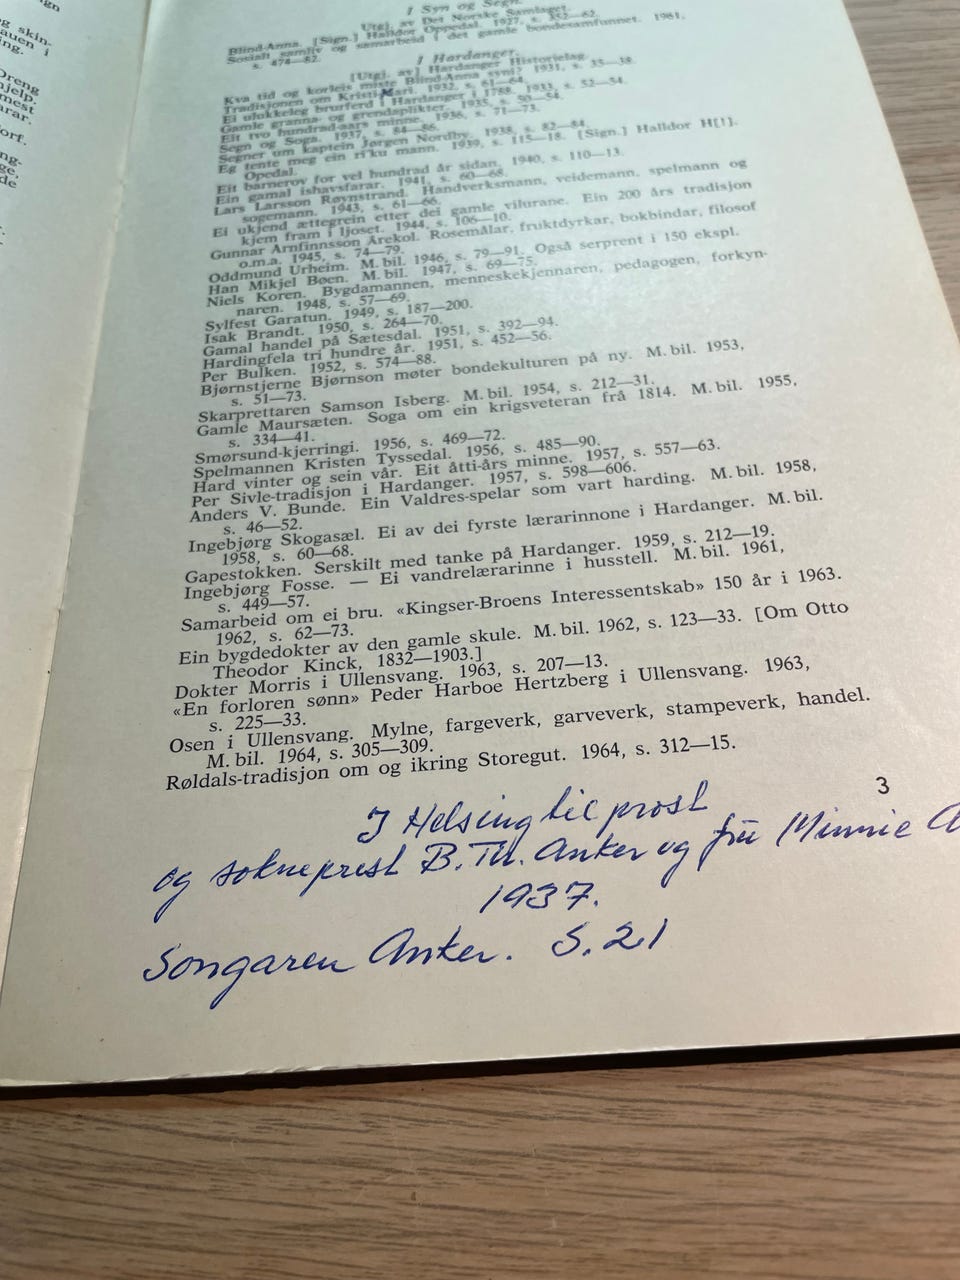 gn
og skin-
auen i
ng.
Dreng
hjelp.
mest
arar.
orf.
ng-
ge,
de
I Syn og Segn.
Utgj. av Det Norske Samlaget.
Blind-Anna. [Sign.] Halldor Oppedal. 1937, s. 352—62.
Sosialt samliv og samarbeid i det gamle bondesamfunnet. 1961,
s. 474—82.
I Hardanger.
[Utgj. av] Hardanger Historielag.
Kva tid og korleis miste Blind-Anna syni? 1931, s. 35—38.
Tradisjonen om Kristi Mari. 1932, s. 61—64.
Ei ulukkeleg brurferd i Hardanger i 1788. 1933, s. 52—54.
Gamle granna- og grendaplikter. 1935, s. 50—54.
Eit tvo hundrad-aars minne. 1936, s. 71—73.
Segn og Soga. 1937, s. 84—86.
Segner um kaptein Jørgen Nordby. 1938, s. 82—84.
Eg tente meg ein ri'ku mann. 1939, s. 115—18. [Sign.] Halldor H[!].
Opedal.
Eit barnerov for vel hundrad år sidan. 1940, s. 110—13.
Ein gamal ishavsfarar. 1941, s. 60—68.
Lars Larsson Røynstrand. Handverksmann, veidemann, spelmann og
sogemann. 1943, s. 61—66.
Ei ukjend ættegrein etter dei gamle vilurane. Ein 200 års tradisjon
kjem fram i ljoset. 1944, s. 106—10.
Gunnar Arnfinnsson Årekol. Rosemålar, fruktdyrkar, bokbindar, filosof
o.m.a. 1945, s. 74—79.
Oddmund Urheim. M. bil. 1946, s. 79—91. Også serprent i 150 ekspl.
Han Mikjel Bøen. M. bil. 1947, s. 69—75.
Niels Koren. Bygdamannen, menneskekjennaren, pedagogen, forkyn-
naren. 1948, s. 57—69.
Sylfest Garatun. 1949, s. 187—200.
Isak Brandt. 1950, s. 264—70.
Gamal handel på Sætesdal. 1951, s. 392—94.
Hardingfela tri hundre år. 1951, s. 452—56.
Per Bulken. 1952, s. 574—88.
Bjørnstjerne Bjørnson møter bondekulturen på ny. M. bil. 1953,
s. 51—73.
Skarprettaren Samson Isberg. M. bil. 1954, s. 212—31.
Gamle Maursæten. Soga om ein krigsveteran frå 1814. M. bil. 1955,
s. 334—41.
Smørsund-kjerringi. 1956, s. 469—72.
Spelmannen Kristen Tyssedal. 1956, s. 485—90.
Hard vinter og sein vår. Eit åtti-års minne. 1957, s. 557—63.
Per Sivle-tradisjon i Hardanger. 1957, s. 598—606.
Anders V. Bunde. Ein Valdres-spelar som vart harding. M. bil. 1958,
s. 46—52.
Ingebjørg Skogasæl. Ei av dei fyrste lærarinnone i Hardanger. M. bil.
1958, s. 60—68.
Gapestokken. Serskilt med tanke på Hardanger. 1959, s. 212—19.
Ingebjørg Fosse. — Ei vandrelærarinne i husstell. M. bil. 1961,
s. 449—57.
Samarbeid om ei bru. «Kingser-Broens Interessentskab» 150 år i 1963.
1962, s. 62—73.
Ein bygdedokter av den gamle skule. M. bil. 1962, s. 123—33. [Om Otto
Theodor Kinck, 1832—1903.]
Dokter Morris i Ullensvang. 1963, s. 207—13.
«En forloren sønn» Peder Harboe Hertzberg i Ullensvang. 1963,
s. 225—33.
Osen i Ullensvang. Mylne, fargeverk, garveverk, stampeverk, handel.
M. bil. 1964, s. 305—309.
Røldals-tradisjon om og ikring Storegut. 1964, s. 312—15.
3
I Helsing til prost
og sokneprest B. Th. Anker og frü Minnie A
1937.
Songaren Anker. S. 21